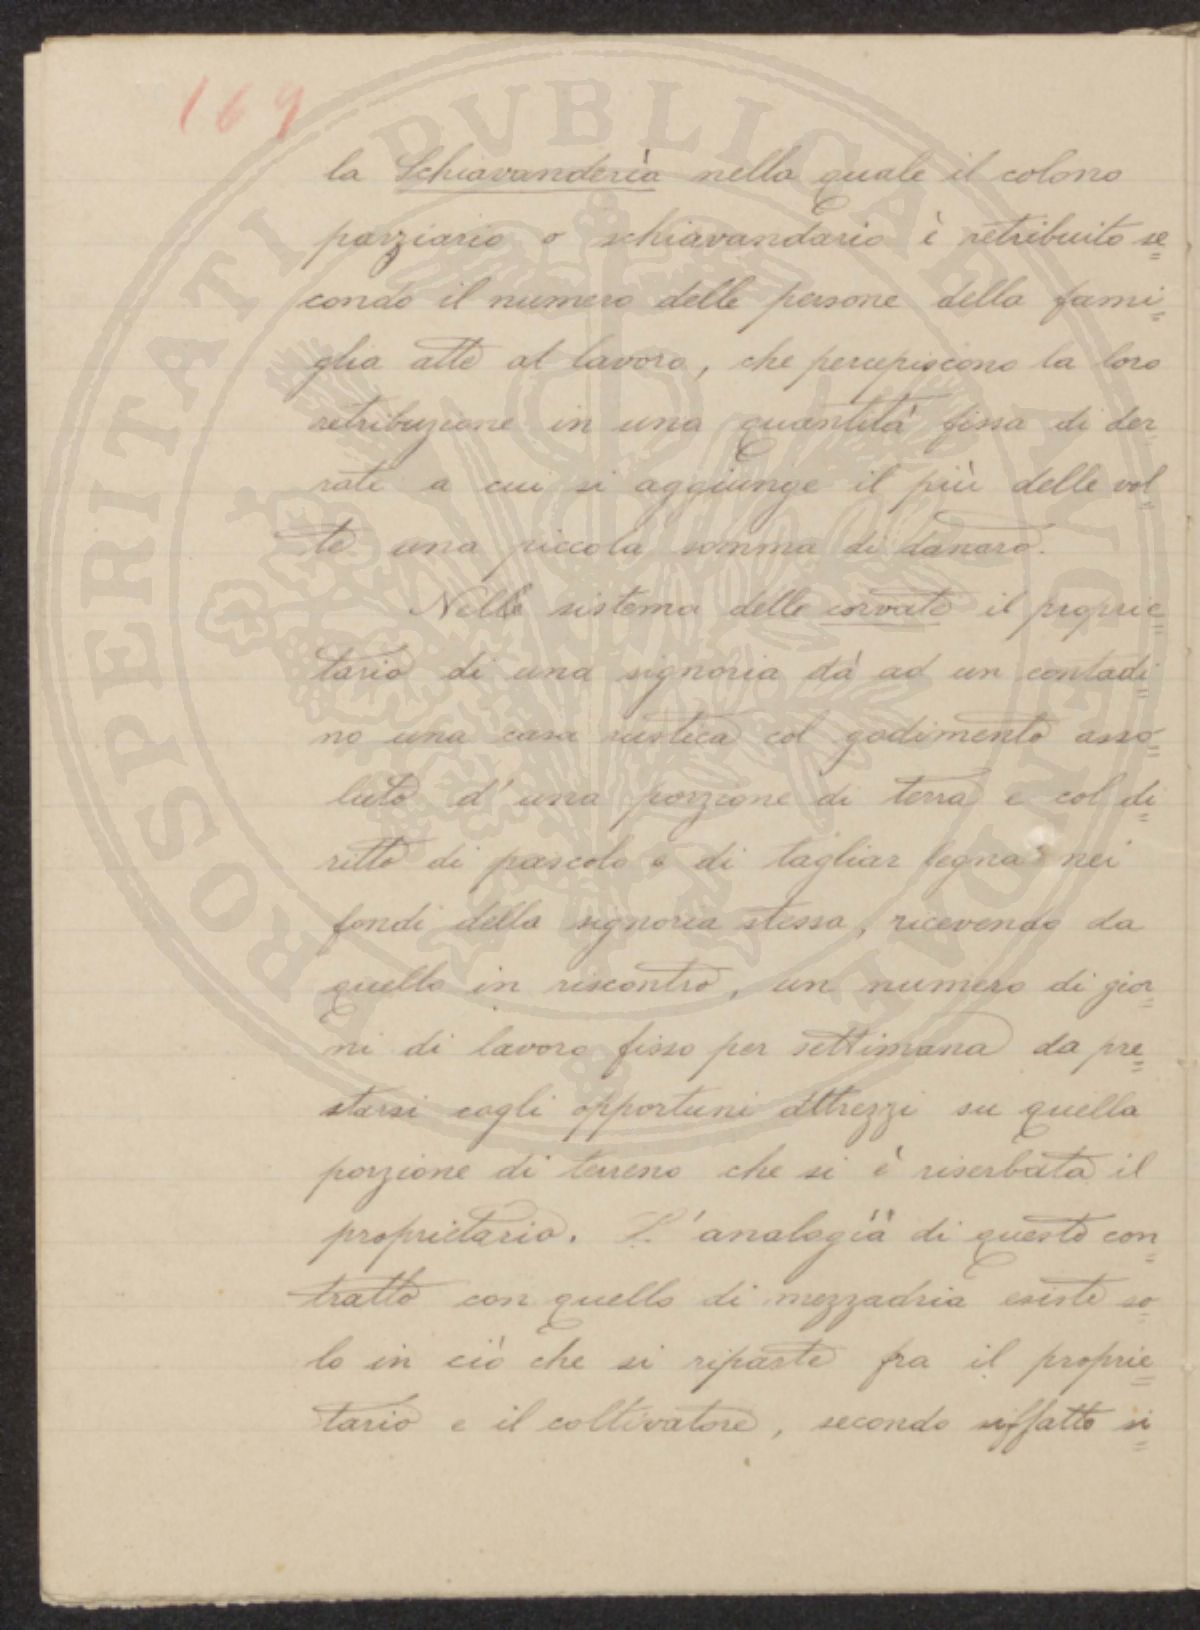 169
la Schiavanderìa nella quale il colono
parziario o schiavandario è retribuito se=
condo il numero delle persone della fami=
glia atte al lavoro, che percepiscono la loro
retribuzione in una quantità fissa di der=
rate a cui si aggiunge il più delle vol=
te una piccola somma di danaro.
Nelle sistema delle corvate il proprie=
tario di una signoria dà ad un contadi=
no una casa rustica col godimento asso=
luto d'una porzione di terra e col di=
ritto di pascolo e di tagliar legna nei
fondi della signoria stessa, ricevendo da
quello in riscontro, un numero di gior=
ni di lavoro fisso per settimana da pre=
starsi cogli opportuni attrezzi su quella
porzione di terreno che si è riserbata il
proprietario. L'analogia di questo con=
tratto con quello di mezzadria esiste so=
lo in ciò che si riparte fra il proprie=
tario e il coltivatore, secondo siffatto si=
PROSPERITATI PVBLICAE AVGENDAE